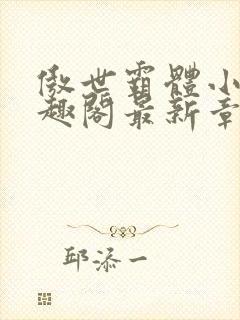 傲世霸體小
趣閣最新章
邱添一